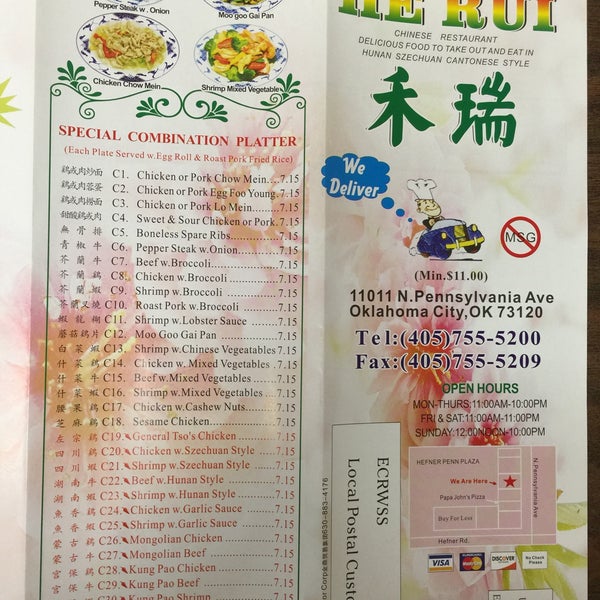 Pepper Steak w. Onion
Moo goo Gai Pan
Chicken Chow Mein
Shrimp Mixed Vegetable
SPECIAL COMBINATION PLATTER
(Each Plate Served w.Egg Roll & Roast Pork Fried Rice)
鷄或肉炒面 C1. Chicken or Pork Chow Mein....7.15
鷄或肉蓉蛋 C2. Chicken or Pork Egg Foo Young.7.15
鷄或肉撈面 C3. Chicken or Pork Lo Mein.........7.15
甜酸鷄或肉 C4. Sweet & Sour Chicken or Pork.7.15
無骨排 C5. Boneless Spare Ribs..............7.15
青椒牛 C6. Pepper Steak w.Onion............7.15
芥蘭牛 C7. Beef w.Broccoli....................7.15
芥蘭鷄 C8. Chicken w.Broccoli..............7.15
芥蘭蝦 C9. Shrimp w.Broccoli...............7.15
芥蘭叉燒 C10. Roast Pork w.Broccoli.........7.15
蝦龍糊 C11. Shrimp w.Lobster Sauce ......7.15
蘑菇鷄片 C12. Moo Goo Gai Pan..............7.15
白菜蝦 C13. Shrimp w.Chinese Vegeatables.7.15
什菜鷄 C14. Chicken w. Mixed Vegetables .7.15
什菜牛 C15. Beef w.Mixed Vegetables......7.15
什菜蝦 C16. Shrimp w.Mixed Vegetables...7.15
腰果鷄 C17. Chicken w.Cashew Nuts.......7.15
芝麻鷄 C18. Sesame Chicken..................7.15
左宗鷄 C19. General Tso's Chicken............7.15
四川鷄 C20. Chicken w.Szechuan Style ....7.15
四川蝦 C21. Shrimp w.Szechuan Style .....7.15
湖南牛 C22. Beef w.Hunan Style ............7.15
湖南蝦 C23. Shrimp w.Hunan Style.........7.15
魚香鷄 C24. Chicken w.Garlic Sauce .......7.15
魚香蝦 C25. Shrimp w.Garlic Sauce ........7.15
蒙古鷄 C26. Mongolian Chicken ............7.15
蒙古牛 C27. Mongolian Beef .................7.15
宮保鷄 C28. Kung Pao Chicken ..............7.15
宮保牛 C29. Kung Pao Beef ..................7.15
C30. Kung Pao Shrimp ...............7.15
HE RUI
CHINESE RESTAURANT
DELICIOUS FOOD TO TAKE OUT AND EAT IN
HUNAN SZECHUAN CANTONESE STYLE
禾瑞
We
Deliver
MSG
(Min.$11.00)
11011 N.Pennsylvania Ave
Oklahoma City,OK 73120
Tel:(405)755-5200
Fax:(405)755-5209
OPEN HOURS
MON-THURS:11:00AM-10:00PM
FRI & SAT:11:00AM-11:00PM
SUNDAY:12:00NOON-10:00PM
HEFNER PENN PLAZA
We Are Here
Papa John's Pizza
Buy For Less
Hefner Rd.
N.Pennsylvania Ave
VISA
MasterCard
DISCOVER
No Check
Please
ECRWSS
Local Postal Custo